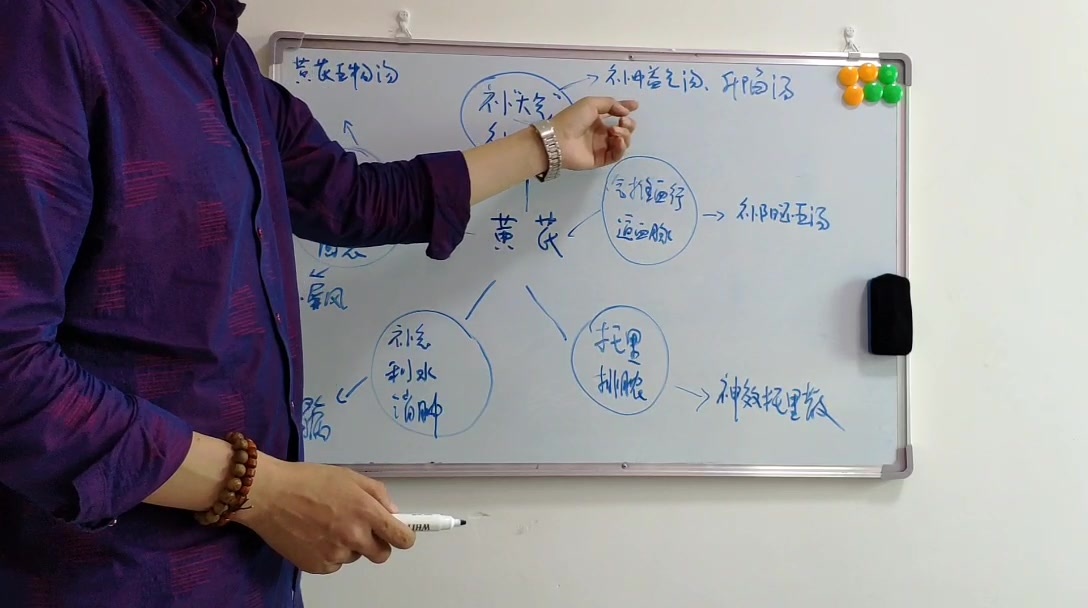 黄芪五物汤
补"大气"
→补中益气汤、升陷汤
气推血行
通血脉
→补阳还五汤
黄芪
屏风
补气
利水
消肿
托里
排脓
→神效托里散
WHIT